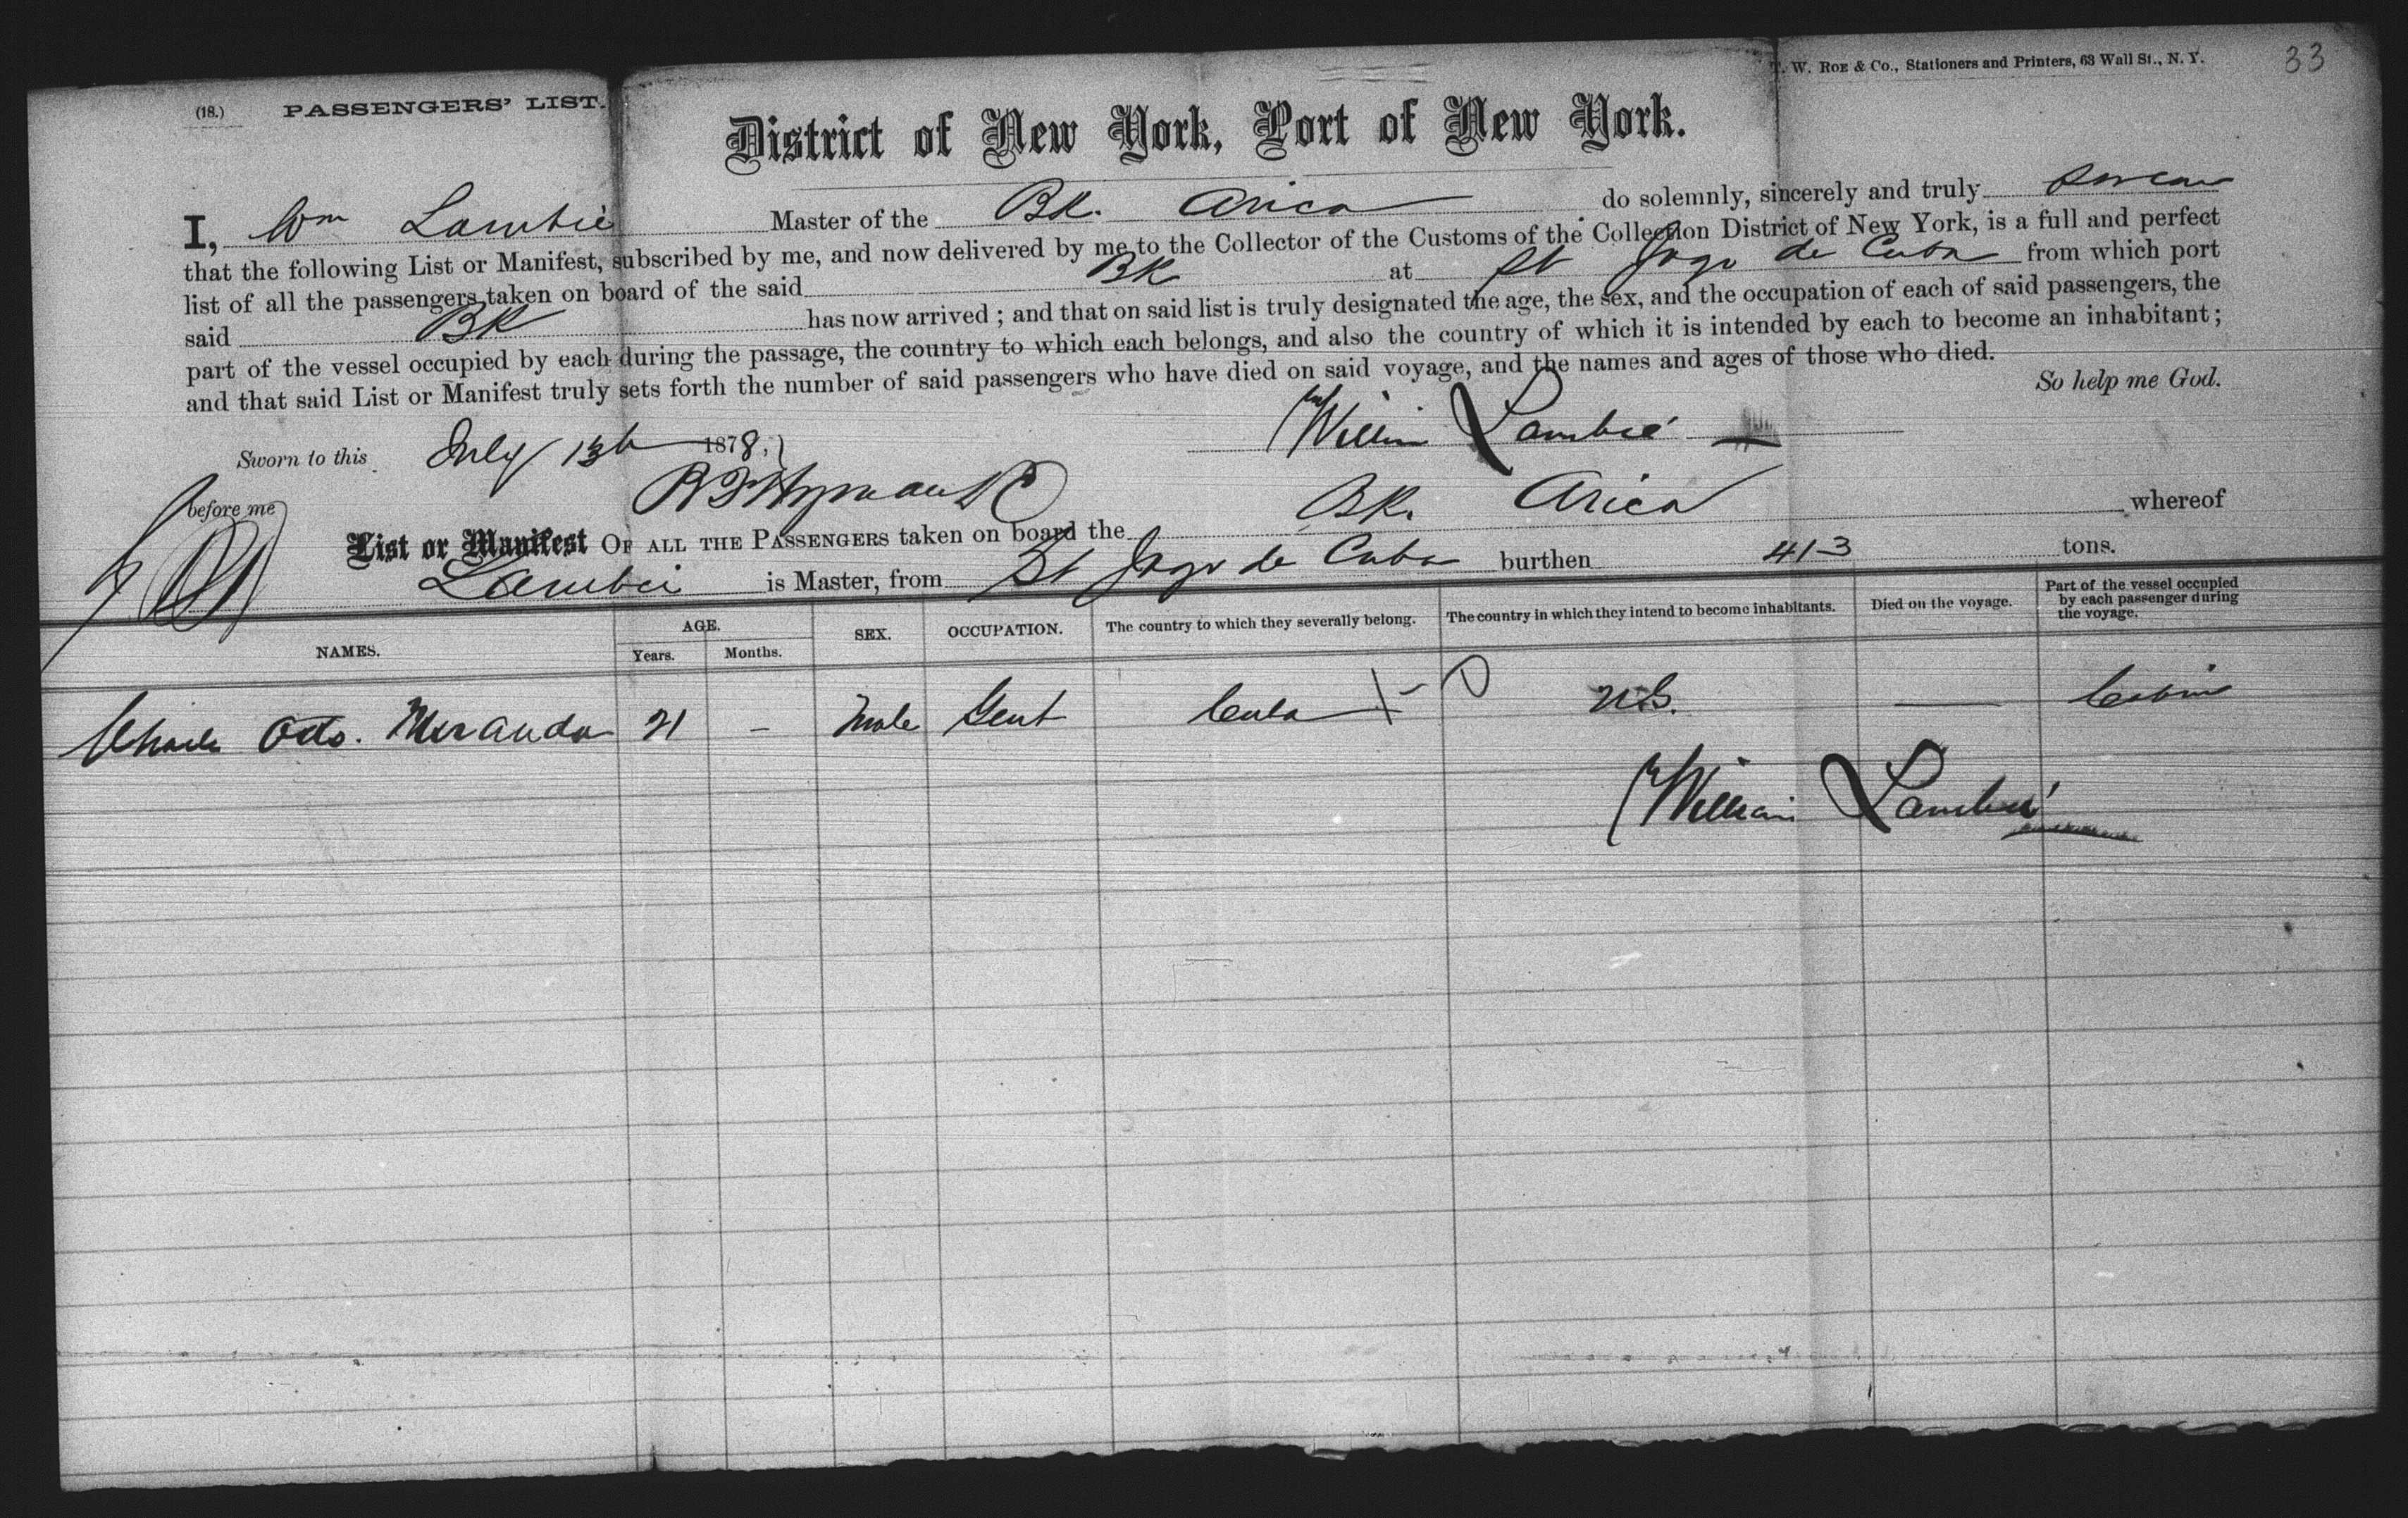 (18.) PASSENGERS' LIST. T. W. ROE & Co., Stationers and Printers, 63 Wall St., N. Y. 33
District of New York, Port of New York.
I, Wm Lambie Master of the BK. Arica do solemnly, sincerely and truly swear
that the following List or Manifest, subscribed by me, and now delivered by me to the Collector of the Customs of the Collection District of New York, is a full and perfect
list of all the passengers taken on board of the said BK at St Jago de Cuba from which port
said BK has now arrived; and that on said list is truly designated the age, the sex, and the occupation of each of said passengers, the
part of the vessel occupied by each during the passage, the country to which each belongs, and also the country of which it is intended by each to become an inhabitant;
and that said List or Manifest truly sets forth the number of said passengers who have died on said voyage, and the names and ages of those who died.
So help me God.
Sworn to this July 13th 1878, William Lambie
before me
List or Manifest OF ALL THE PASSENGERS taken on board the BK. Arica whereof
Lambie is Master, from St Jago de Cuba burthen 413 tons.
NAMES. AGE. Years. Months. SEX. OCCUPATION. The country to which they severally belong. The country in which they intend to become inhabitants. Died on the voyage. Part of the vessel occupied by each passenger during the voyage.
Charles Miranda 21 - Male Gent Cuba U.S. — Cabin
William Lambie